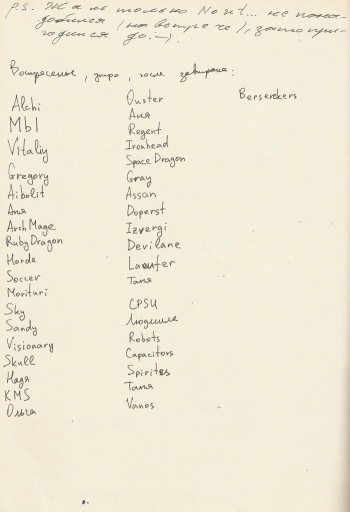 P.S. Жаль только No it... не пона-
добился (на встрече), зато при-
годился до. :-)
Воскресенье, утро, после завтрака:
Alchi
MbI
Vitaliy
Gregory
Aibolit
Аня
ArchMage
RubyDragon
Horde
Soccer
Morituri
Sky
Sandy
Visionary
Skull
Надя
KMS
Ольга
Ouster
Аня
Regent
Ironhead
Space Dragon
Gray
Assan
Doperst
Izvergi
Devilane
Laufer
Таня
CPSU
Людмила
Robots
Capacitors
Spirites
Таня
Vanos
Berserkers